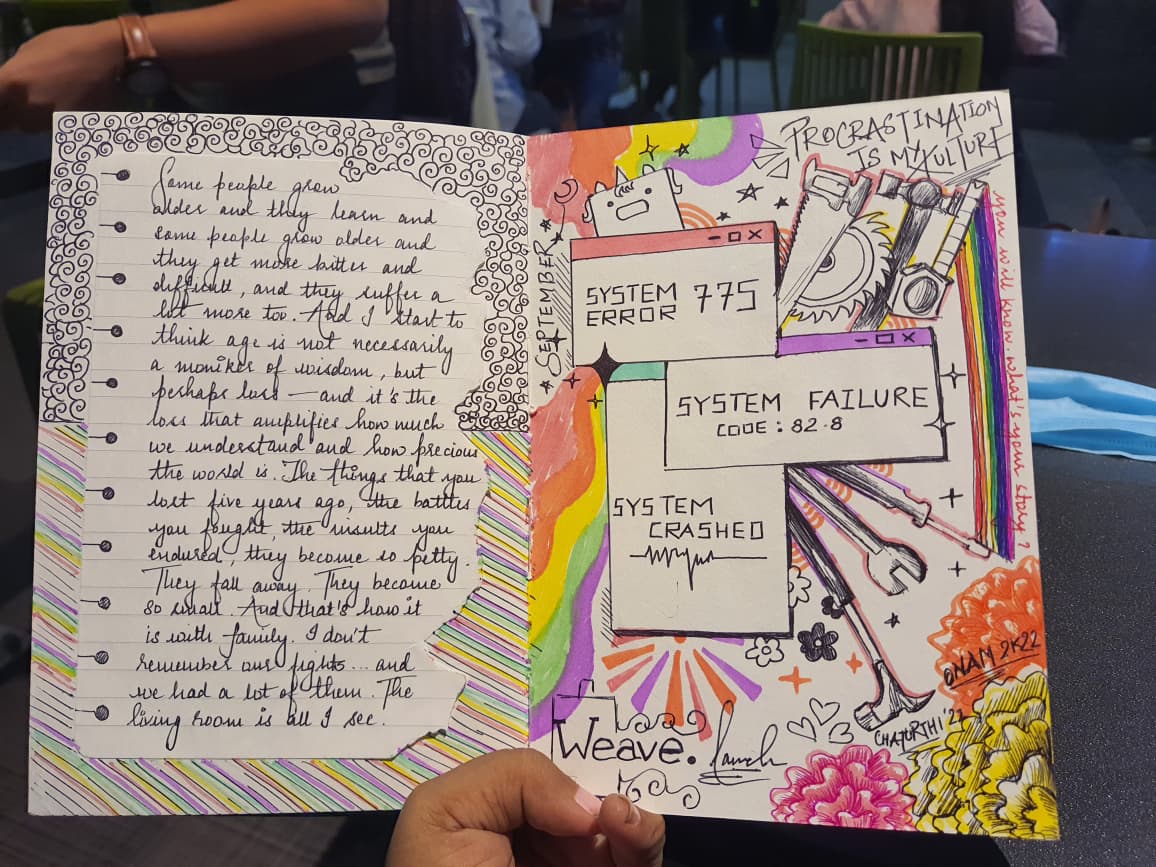 Some people grow
older and they learn and
some people grow older and
they get more bitter and
difficult, and they suffer a
lot more too. And I start to
think age is not necessarily
a moniker of wisdom, but
perhaps loss — and it's the
loss that amplifies how much
we understand and how precious
the world is. The things that you
lost five years ago, the battles
you fought, the insults you
endured, they become so petty.
They fall away. They become
so small. And that's how it
is with family. I don't
remember our fights... and
we had a lot of them. The
living room is all I see.
SEPTEMBER
PROCRASTINATION
IS MY KULTURE
SYSTEM
ERROR 775
SYSTEM FAILURE
CODE : 82.8
SYSTEM
CRASHED
now will know. what's your story?
ONAM 2K22
CHATURTHI '22
Weave.